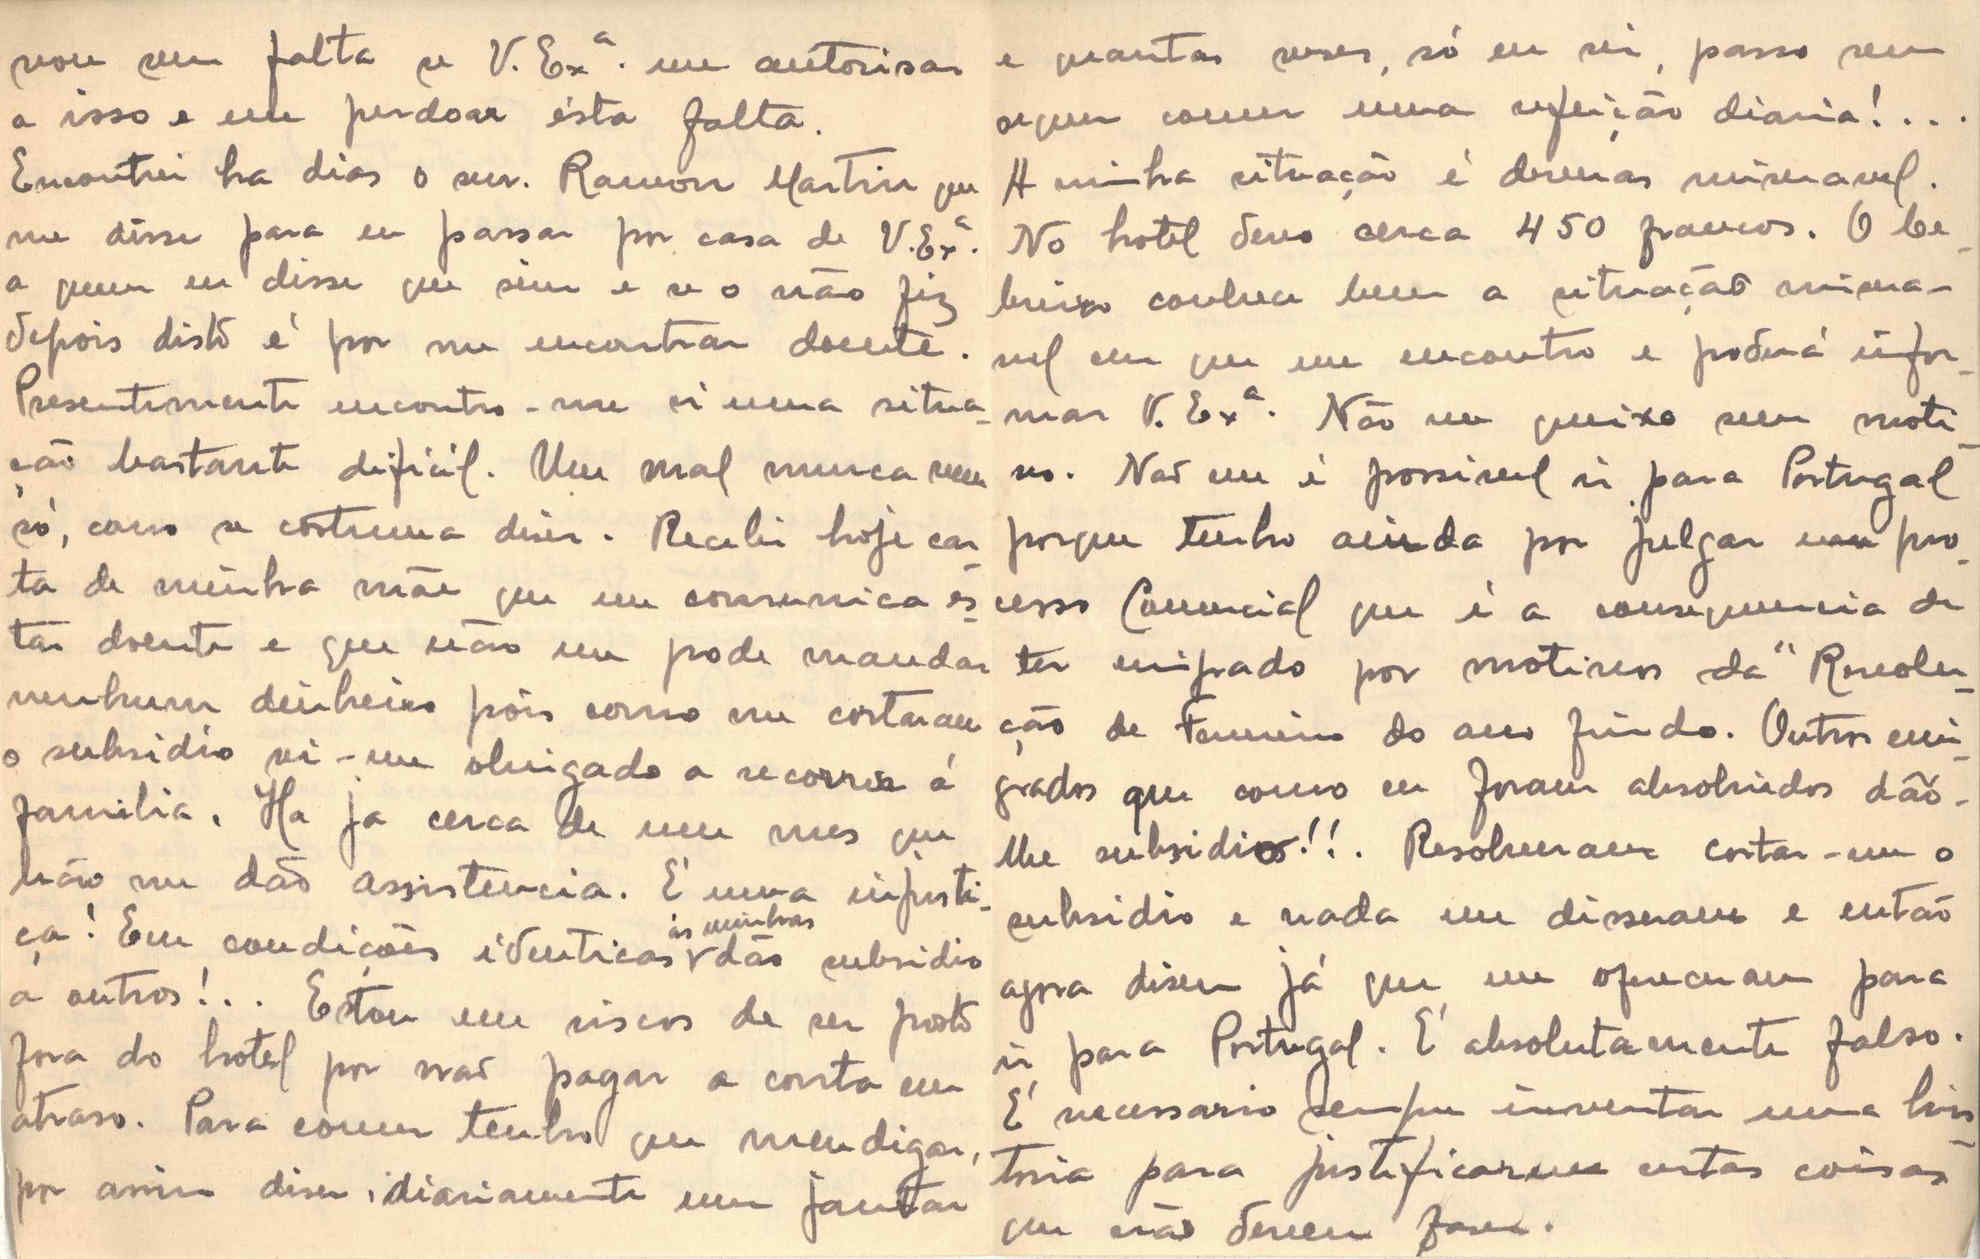 vou sem falta se V. Exª. me autorisar
a isso e me perdoar ésta falta.
Encontrei ha dias o snr. Ramon Martin que
me disse para eu passar por casa de V. Exª.
a quem eu disse que sim e se o não fiz
depois disto é por me encontrar doente.
Presentemente encontro-me n'uma situa-
ção bastante dificil. Um mal nunca vem
só, como se costuma diser. Recebi hoje car-
ta de minha mãe que me comunica es-
tar doente e que não me pode mandar
nenhum dinheiro pois como me cortaram
o subsidio vi-me obrigado a recorrer á
familia. Ha ja cerca de um mes que
não me dão assistencia. É uma injusti-
ça! Em condições identicas ás minhas dão subsidio
a outros!.. Estou em riscos de ser posto
fora do hotel por não pagar a conta em
atraso. Para comer tenho que mendigar,
por assim diser, diariamente um jantar
e quantas veses, só eu sei, passo sem
sequer comer uma refeição diaria!...
A minha situação é deveras miseravel.
No hotel devo cerca 450 francos. O Ze-
breiro conhece bem a situação misera-
vel em que me encontro e poderá infor-
mar V. Exª. Não me queixo sem moti-
vo. Não me é possivel ir para Portugal
porque tenho ainda por julgar um pro-
cesso Comercial que é a consequencia de
ter emigrado por motivos da "Revolu-
ção de Fevereiro do ano findo. Outros emi-
grados que como eu foram absolvidos dão-
lhe subsidios!!. Resolveram cortar-me o
subsidio e nada me disseram e então
agora disem já que me ofereceram para
ir para Portugal. É absolutamente falso.
É necessario sempre inventar uma his-
toria para justificarem certas coisas
que não devem fazer.